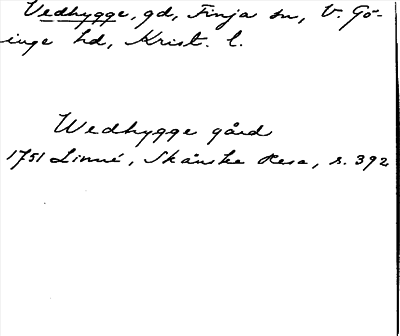 Vedhygge, gd, Finja sn, V. Gö-
inge hd, Krist. l.
Wedhygge gård
1751 Linné, Skånska Resa, s. 392